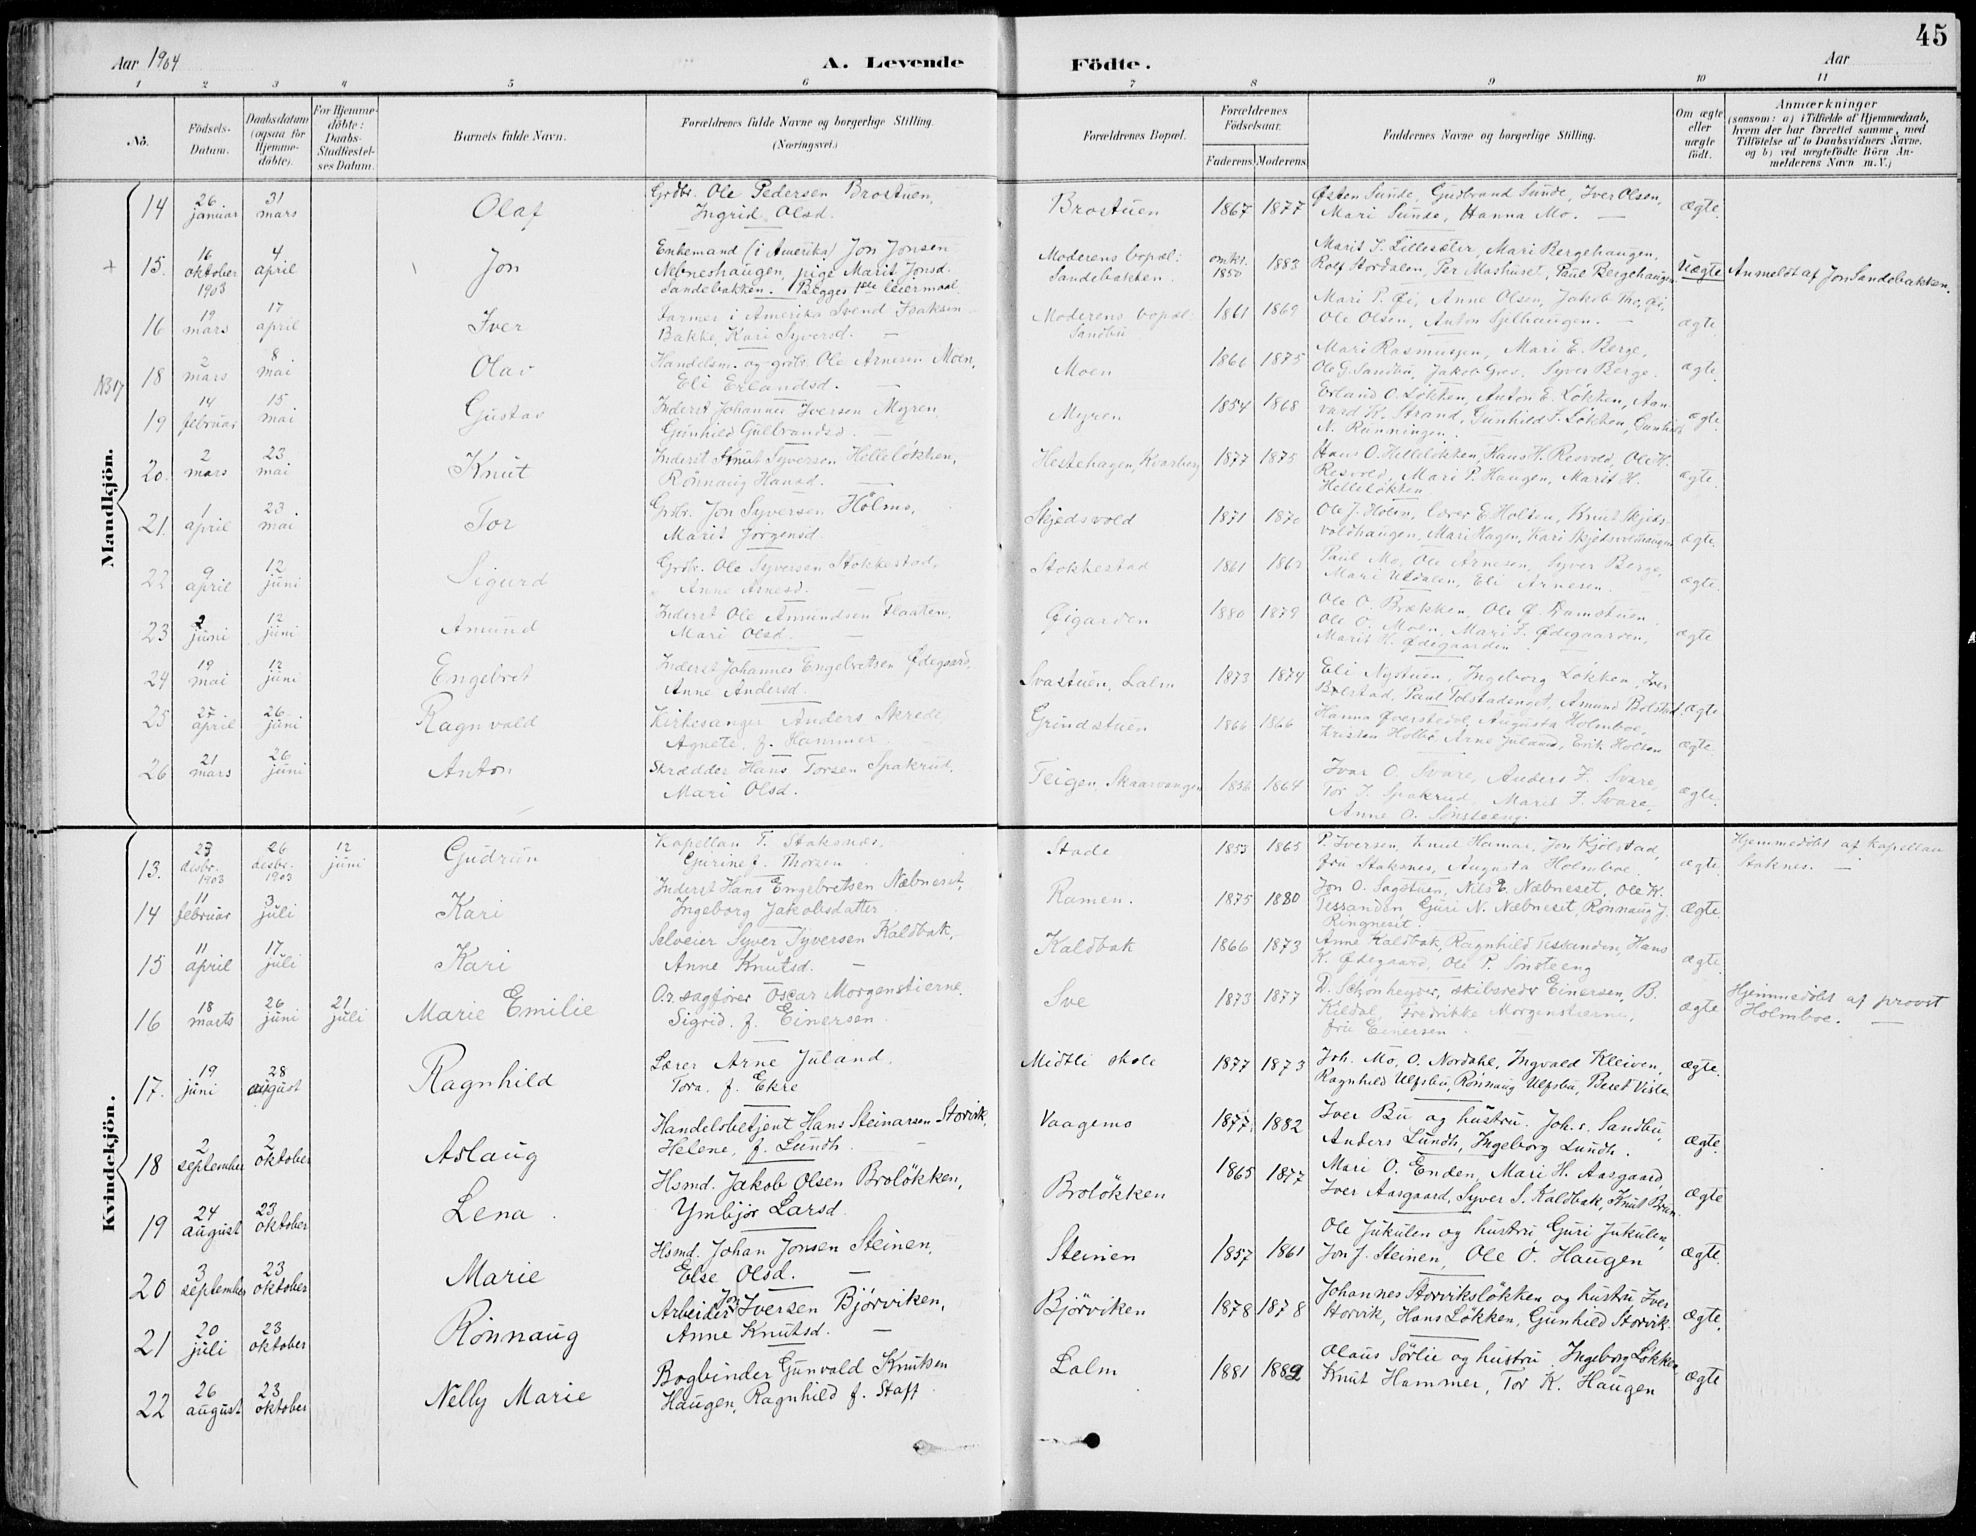 45
Aar 1904
A. Levende
Födte.
Aar
1 2 3 4 5 6 7 8 9 10 11
No.
Födsels-Datum.
Daabsdatum (ogsaa for Hjemmedöbte).
For Hjemmedöbte: Daabs-Stadfæstelses Datum.
Barnets fulde Navn.
Forældrenes fulde Navne og borgerlige Stilling.
(Næringsvei.)
Forældrenes Bopæl.
Forældrenes Födselsaar.
Faderens Moderens
Faddernes Navne og borgerlige Stilling.
Om ægte eller uægte födt.
Anmærkninger
(saasom: a) i Tilfælde af Hjemmedaab,
hvem der har forrettet samme, med
Tilföielse af to Daabsvidners Navne,
og b) ved uægtefödte Börn An-
melderens Navn m. V.)
Mandkjön.
14 26 januar 31 mars Olaf
Grdbr. Ole Pedersen Brostuen,
Ingrid Olsd.
Brostuen 1867 1877
Østen Sunde, Gudbrand Sunde, Iver Olsen,
Mari Sunde, Hanna Mo. —
ægte.
15. 16 oktober 1903 4 april Jon
Enkemand (i Amerika) Jon Jonsen
Nebneshaugen, pige Marit Jonsd.
Sandebakken. Begges 1ste leiermaal
Moderens bopæl:
Sandebakken.
omkr. 1850 1883
Marit J. Lillesæter, Mari Bergehaugen,
Rolf Stordalen, Per Mashuset, Paul Bergehaugen.
Uægte
Anmeldt af Jon Sandebakken.
16 19 mars 17 april Iver
Farmer i Amerika Svend Isaksen
Bakke, Kari Syversd. —
Moderens bopæl:
Sandbu
1861 1869
Mari P. Øi, Anne Olsen, Jakob Mo, Øi,
Ole Olsen, Anton Selhaugen. —
ægte.
NB 17
18 2 mars 8 mai Olav
Handelsm. og grdbr. Ole Arnesen Moen,
Eli Erlandsd. —
Moen 1866 1875
Mari Rasmussen, Mari E. Berge,
Ole G. Sandbu, Jakob Grev. Syver Berge.
ægte.
19 14 februar 15 mai Gustav
Inderst Johannes Iversen Myren,
Gunhild Gulbrandsd. —
Myren 1854 1868
Erland O. Løkken, Anton E. Løkken, Aan-
vard K. Strand, Gunhild J. Løkken, Gunhild
N. Rønningen.
ægte.
20. 2 mars 23 mai Knut
Inderst Knut Syversen Helleløkken,
Rønnaug Hansd. —
Hestehagen, Kvarberg 1877 1875
Hans O. Helleløkken, Hans H. Resvold, Ole H.
Resvold, Mari P. Haugen, Marit H.
Helleløkken.
ægte.
21. 1 april 23 mai Tor
Grdbr. Jon Syversen Holmo,
Marit Jørgensd.
Skjedsvold 1871 1870
Ole J. Holen, lærer E. Holten, Knut Skjeds-
voldhaugen, Mari Hagen, Kari Skjedsvoldhaugen
ægte.
22 9 april 12 juni Sigurd
Grdbr. Ole Syversen Stokkestad,
Anne Arnesd. —
Stokkestad 1861 1862
Paul Mo, Ole Arnesen, Syver Berge,
Mari Utdalen, Eli Arnesen.
ægte.
23 2 juni 12 juni Amund
Inderst Ole Amundsen Flaaten,
Mari Olsd. —
Øigarden 1880 1879
Ole O. Brækken, Ole Ø. Ramstuen,
Ole O. Moen, Mari J. Ødegaarden,
Marit H. Ødegaarden.
ægte
24 19 mai 12 juni Engebret
Inderst Johannes Engebretsen Ødegaard,
Anne Andersd.
Svastuen, Lalm 1873 1874
Eli Nystuen, Ingeborg Løkken, Iver
Bolstad, Paul Tolstadenget, Amund Bolstad.
ægte
25 27 april 26 juni Ragnvald
Kirkesanger Anders Skrede,
Agnete f. Hammer
Grindstuen 1866 1866
Hanna Øverstedal, Augusta Holmboe,
Kristen Holbø, Arne Juland, Erik Holten
ægte.
26 21 mars 26 juni Anton
Skrædder Hans Torsen Spakrud,
Mari Olsd.
Teigen, Skaarvangen 1856 1864
Ivar O. Svare, Anders J. Svare,
Tor J. Spakrud, Marit J. Svare,
Anne O. Sønsteeng.
ægte.
Kvindekjön.
13. 23 desbr. 1903 26 desbr. 1903 12 juni Gudrun
Kapellan T. Staksnes,
Gurine f. Thorsen
Stade 1853 1865
P. Iversen, Knut Hamar, Jon Kjølstad,
fru Staksnes, Augusta Holmboe.
ægte.
Hjemmedøbt af kapellan
Staknes. —
14 11 februar 3 juli Kari
Inderst Hans Engebretsen Næbneset,
Ingeborg Jakobsdatter
Ramen. 1875 1880
Jon O. Sagstuen, Nils E. Næbneset, Ole K.
Tessanden, Guri N. Næbneset, Rønnaug J.
Ringneset.
Ægte.
15 11 april 17 juli Kari
Selveier Syver Syversen Kaldbak,
Anne Knutsd. —
Kaldbak 1866 1873
Anne Kaldbak, Ragnhild Tessanden, Hans
K. Ødegaard, Ole P. Sønsteeng
ægte.
16 18 marts 26 juni 21 juli Marie Emilie
O.r. sagfører Oscar Morgenstierne,
Sigrid f. Einersen.
Sve 1873 1877
D. Schønheyder, skibsreder Einersen, B.
Kildal, Fredrikke Morgenstierne,
fru Einersen.
ægte
Hjemmedøbt af provst
Holmboe. —
17. 19 juni 28 august Ragnhild
Lærer Arne Juland,
Tora f. Ekre
Midtli skole 1877 1873
Joh. Mo, O. Nordahl, Ingvald Kleiven,
Ragnhild Ulfsbu, Rønnaug Ulfsbu, Beret Viste
ægte.
18 2 september 2 oktober Aslaug
Handelsbetjent Hans Steinarsen Storvik,
Helene, f. Lundh. —
Vaagemo 1877. 1882
Iver Bu og hustru. Joh. s. Sandbu,
Anders Lundh, Ingeborg Lundh.
ægte.
19 24 august 23 oktober Lena.
Hsmd. Jakob Olsen Broløkken,
Ymbjør Larsd.
Broløkken 1865 1877
Mari O. Enden, Mari H. Aasgaard,
Iver Aasgaard, Syver S. Kaldbak, Knut Brun.
ægte
20 3 september 23 oktober Marie
Hsmd. Johan Jonsen Steinen,
Else Olsd. —
Steinen 1857 1861
Ole Jukulen og hustru, Guri Jukulen,
Jon J. Steinen, Ole O. Haugen
ægte.
21 20 juli 23 oktober Rønnaug
Arbeider Jon Iversen Bjørviken,
Anne Knutsd. —
Bjørviken 1878 1878
Johannes Storviksløkken og hustru, Iver
Storvik, Hans Løkken, Gunhild Storvik.
ægte.
22 26 august 23 oktober Nelly Marie
Bogbinder Gunvald Knutsen
Haugen, Ragnhild f. Staff.
Lalm 1881 1882
Olaus Sørlie og hustru. Ingeborg Løkken,
Knut Hammer, Tor K. Haugen
ægte